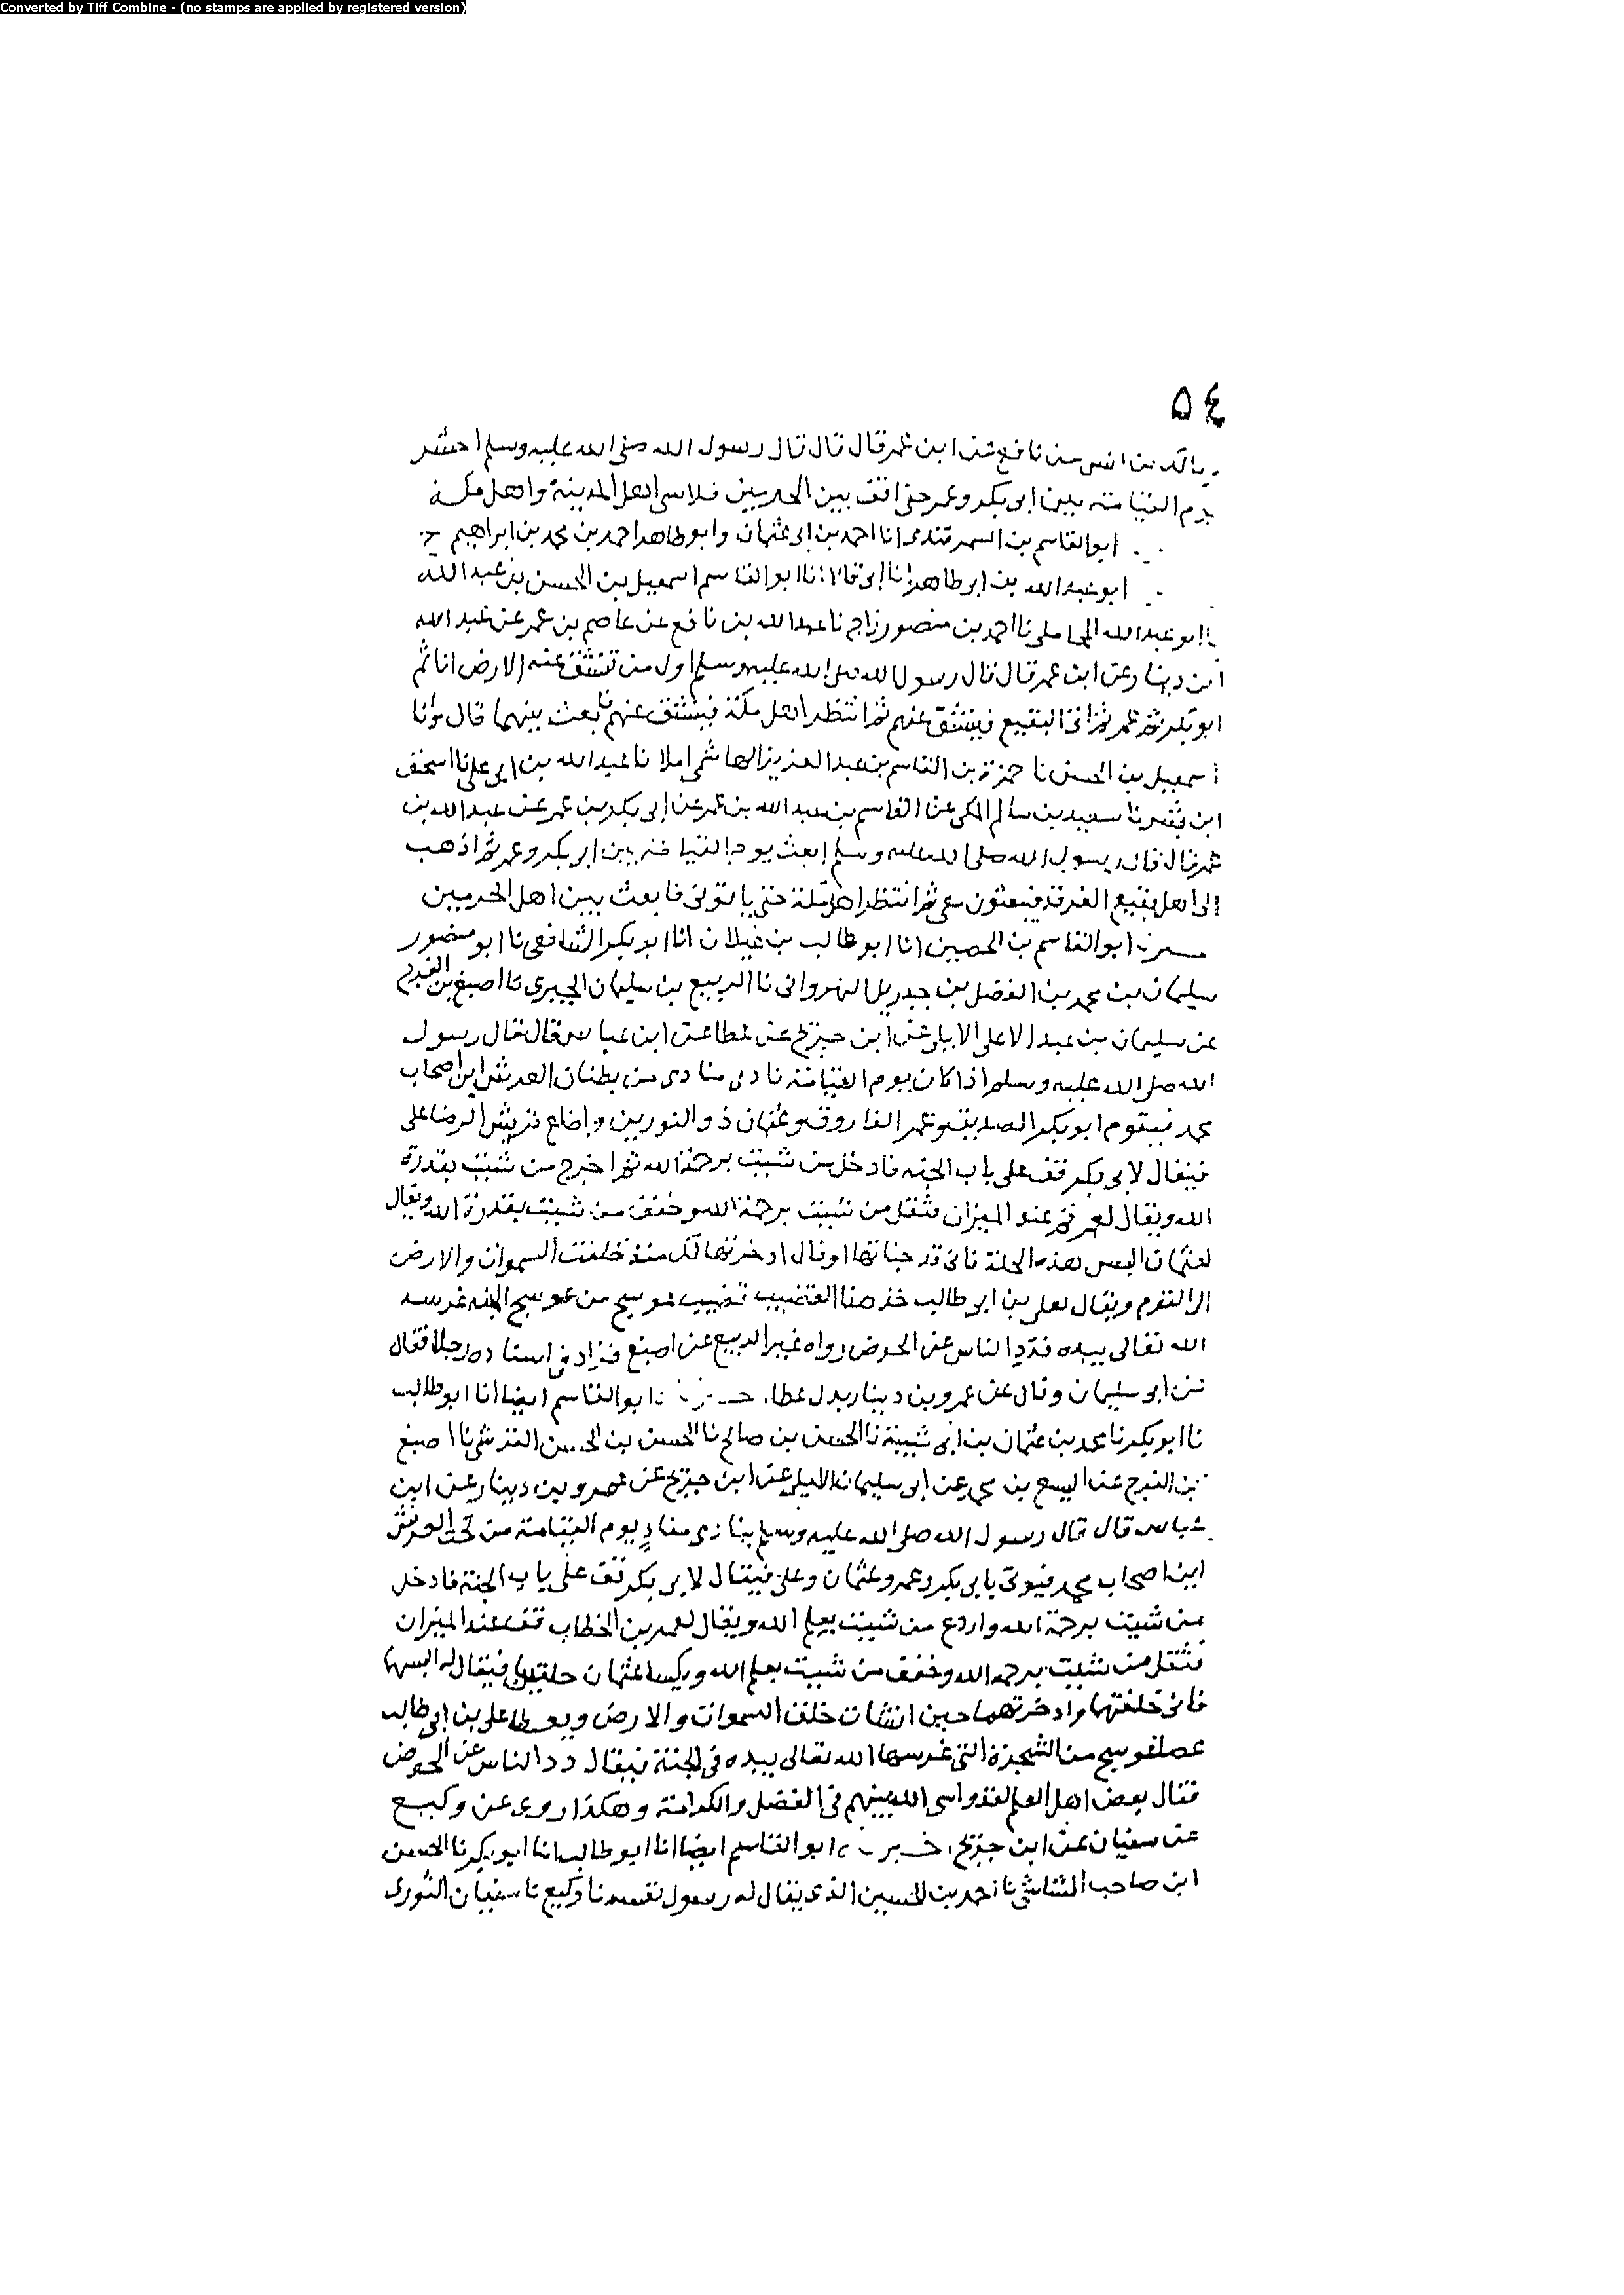 Converted by Tiff Combine - (no stamps are applied by registered version)
٥٤
مالك بن انس عن نافع عن ابن عمر قال قال قال رسول الله صلى الله عليه وسلم احشر
يوم القيامة بين ابو بكر وعمر حتى اقف بين الحرمين اهل المدينة واهل مكة
ابو القاسم بن السمرقندى انا احمد بن ابى عثمان وابو طاهر احمد بن محمد بن ابراهيم
ابو عبد الله بن ابو طاهر انا ابى قالا انا ابو القاسم اسمعيل بن الحسن بن عبد الله
نا ابو عبد الله المحاملى نا احمد بن منصور زاج نا عبد الله بن نافع عن عاصم بن عمر عن عبد الله
ابن دينار عن ابن عمر قال قال رسول الله صلى الله عليه وسلم اول من تنشق عنه الارض انا ثم
ابو بكر ثم عمر ثم اتى البقيع فينشق عنهم ثم انتظر اهل مكة فينشق عنهم فابعث بينهما قال وانا
اسمعيل بن الحسن نا حمزة بن القاسم بن عبد العزيز الهاشمى املا نا عبد الله بن ابى على نا اسحق
ابن بشر نا سعيد بن سالم المكى عن القاسم بن عبد الله بن عمر عن ابى بكر بن عمر عن عبد الله بن
عمر قال قال رسول الله صلى الله عليه وسلم ابعث يوم القيامة بين ابى بكر وعمر ثم اذهب
الى اهل بقيع الغرقد فيبعثون معى ثم انتظر اهل مكة حتى ياتونى فابعث بين اهل الحرمين
ابو القاسم بن الحصين انا ابو طالب بن غيلان انا ابو بكر الشافعى نا ابو منصور
سليمان بن محمد بن الفضل بن جبريل النهروانى نا الربيع بن سليمان الجيزى نا اصبغ بن الفرج
عن سليمان بن عبد الاعلى الايلى عن ابن جريج عن عطا عن ابن عباس قال قال رسول
الله صلى الله عليه وسلم اذا كان يوم القيامة نادى منادى من بطنان العرش اين اصحاب
محمد فيقوم ابو بكر الصديق وعمر الفاروق وعثمان ذو النورين الرضا على
فيقال لابى بكر قف على باب الجنه فادخل من شيت برحمة الله ثم اخرج من شيت بقدرة
الله ويقال لعمر قم عند الميزان فثقل من شيت برحمة الله وخفف من شيت بقدرة الله ويقال
لعثمان البس هذه الحلة فانى قد خباتها او قال ادخرتها لك منذ خلقت السموات والارض
الا اليوم ويقال لعلى بن ابو طالب خذ هذا القضيب قضيب عوسج من عوسج الجنه غرسه
الله تعالى بيده فذد الناس عن الحوض رواه غير الربيع عن اصبغ فزاد فى اسناده رجلا فقال
عن ابو سليمان وقال عن عمرو بن دينار بدل عطا ابو القاسم ايضا انا ابو طالب
نا ابو بكر نا محمد بن عثمان بن ابى شيبة نا الحسن بن صالح نا الحسن بن الحسين القرشى نا اصبغ
بن الفرج عن اليسع بن محمد عن ابى سليمان الايلى عن ابن جريج عن عمرو بن دينار عن ابن
عباس قال قال رسول الله صلى الله عليه وسلم ينادى مناد يوم القيامة من تحت العرش
اين اصحاب محمد فيوتى بابى بكر وعمر وعثمان وعلى فيقال لابى بكر قف على باب الجنة فادخل
من شيت برحمة الله واردع من شيت بعلم الله ويقال لعمر بن الخطاب قف عند الميزان
فثقل من شيت برحمة الله وخفف من شيت بعلم الله ويكسا عثمان حلتين فيقال له البسهما
فانى خلقتهما وادخرتهما حين انشات خلق السموات والارض ويعطا على بن ابى طالب
عصا عوسج من الشجرة التى غرسها الله تعالى بيده فى الجنة فيقال ذد الناس عن الحوض
فقال بعض اهل العلم لقد واسى الله بينهم فى الفضل والكرامة وهكذا روى عن وكيع
عن سفيان عن ابن جريج ابو القاسم ايضا انا ابو طالب انا ابو بكر نا الحسن
ابن صاحب الشاشى نا احمد بن الحسين الذى يقال له رسول نفسه نا وكيع نا سفيان الثورى